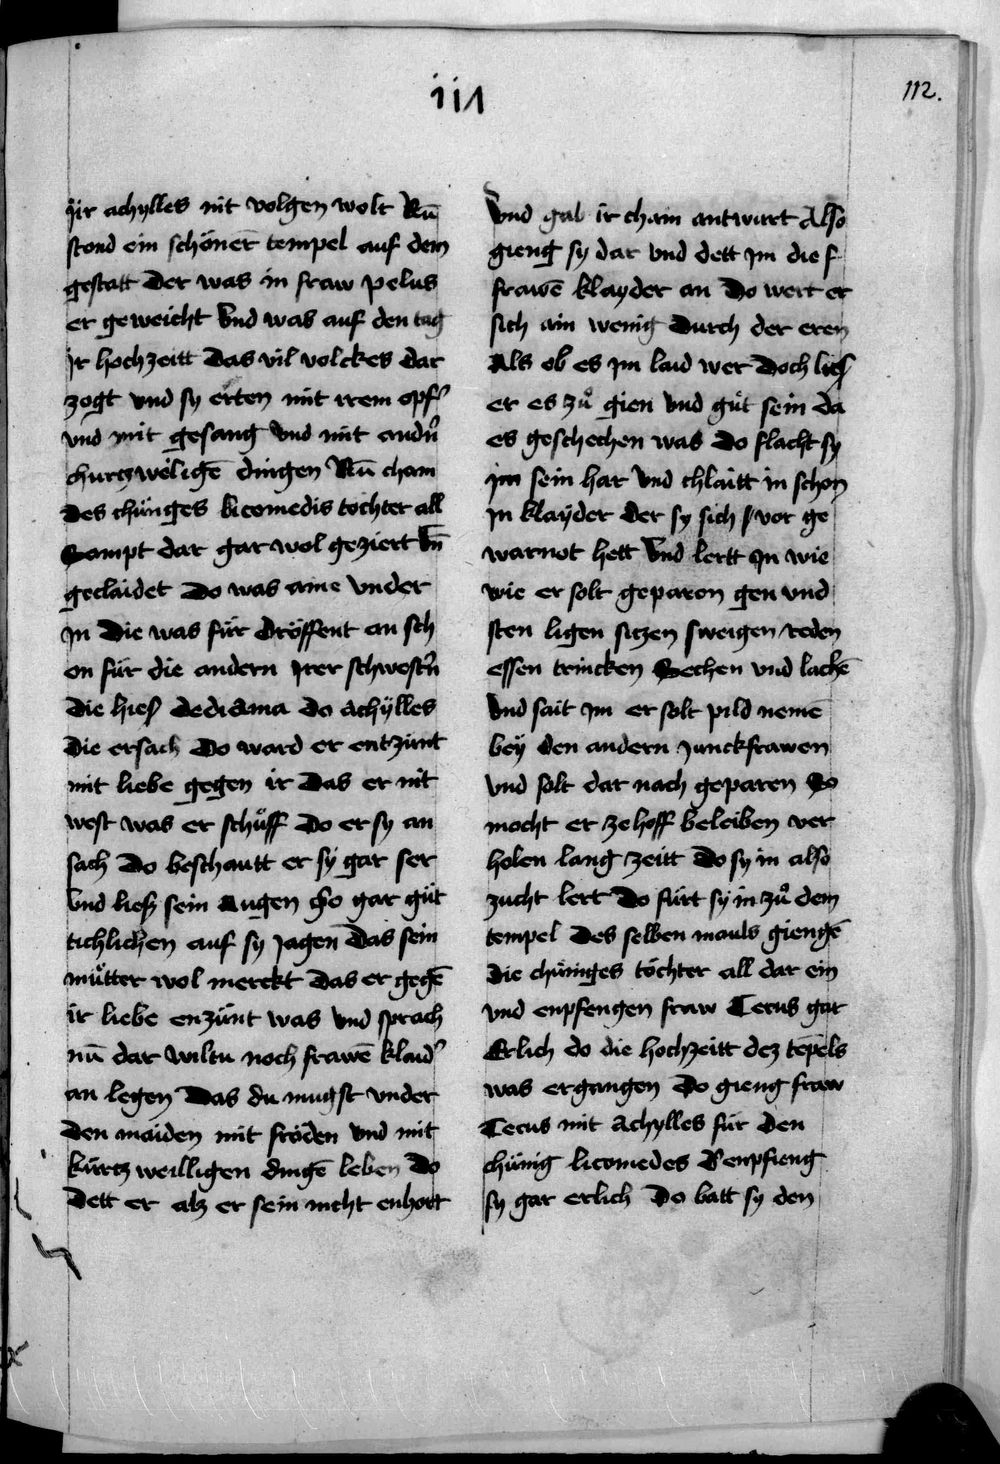 iiɅ
112.
ir achylles nit volgen wolt Nū
stond ein schöner tempel auf dem
gestatt der was in fraw pelus
er geweicht Vnd was auf den tag
jr hochzeitt das vil volckes dar
zogt vnd sy erten mit irem opf
vnd mit gesang vnd mit andn
churczweligē dingen Nū cham
des chüniges licomedis tochter all
Sampt dar gar wol geziert vn̄
geclaidet Do was aine vnder
jn die was für dröffent an sch
on für die andern jrer schwestn
die hies dedidama do achÿlles
die ersach do ward er entzünt
mit liebe gegen ir das er nit
west was er schüff do er sy an
sach do beschautt er sy gar ser
vnd liesz sein augen so gar güt
tichlichen auf sy jagen das sein
müter wol merckt das er gegē
ir liebe enzünt was vnd sprach
nū dar wiltu noch frawē klaid
an legen das du mugst vnder
den maiden mit fröden vnd mit
kurcz weilligen dingē leben do
dett er alz er sein nicht enhort
vnd gab ir chain antwurt Also
gieng sy dar vnd dett jm die f
frawē klayder an Do wert er
sich ain wenig durch der eren
Als ob es jm laid wer doch lies
er es zů gien vnd güt sein da
es geschechen was do flacht sy
jm sein har vnd chlaitt in schon
jn klaÿder der sy sich vor ge
warnot hett vnd lertt jn wie
wie er solt geparon gen vnd
sten ligen siczen sweigen reden
essen trincken Sechen vnd lachē
vnd sait jm er solt pild nemē
beÿ den andern junckfrawen
vnd solt dar nach geparen So
mocht er ze hoff beleiben ver
holen lang zeitt do sy in also
zucht lert Do fürt sy in zů dem
tempel des selben mauls giengē
die chüniges töchter all dar ein
vnd enpfengen fraw Tecus gar
Erlich do die hochzeitt dez tēpels
was ergangen do gieng fraw
Tecus mit achylles für den
chünig licomedes Der enpfieng
sy gar erlich do batt sy den